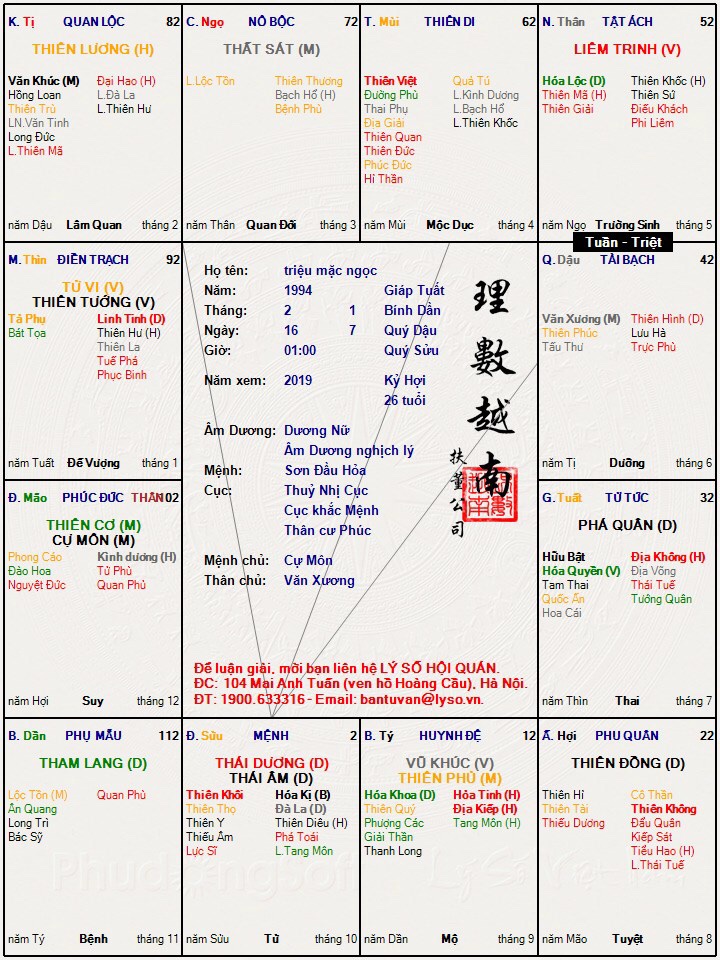 K. Tị QUAN LỘC 82
THIÊN LƯƠNG (H)
Văn Khúc (M) Đại Hao (H)
Hồng Loan L.Đà La
Thiên Trù L.Thiên Hư
LN.Văn Tinh
Long Đức
L.Thiên Mã
năm Dậu Lâm Quan tháng 2
C. Ngọ NÔ BỘC 72
THẤT SÁT (M)
L.Lộc Tồn Thiên Thương
Bạch Hổ (H)
Bệnh Phù
năm Thân Quan Đới tháng 3
T. Mùi THIÊN DI 62
Thiên Việt Quả Tú
Đường Phù L.Kình Dương
Thai Phụ L.Bạch Hổ
Địa Giải L.Thiên Khốc
Thiên Quan
Thiên Đức
Phúc Đức
Hỉ Thần
năm Mùi Mộc Dục tháng 4
N. Thân TẬT ÁCH 52
LIÊM TRINH (V)
Hóa Lộc (D) Thiên Khốc (H)
Thiên Mã (H) Thiên Sứ
Thiên Giải Điếu Khách
Phi Liêm
năm Ngọ Trường Sinh tháng 5
Tuần - Triệt
M. Thìn ĐIỀN TRẠCH 92
TỬ VI (V)
THIÊN TƯỚNG (V)
Tả Phụ Linh Tinh (D)
Bát Tọa Thiên Hư (H)
Thiên La
Tuế Phá
Phục Binh
năm Tuất Đế Vượng tháng 1
Họ tên: triệu mặc ngọc
Năm: 1994 Giáp Tuất
Tháng: 2 1 Bính Dần
Ngày: 16 7 Quý Dậu
Giờ: 01:00 Quý Sửu
Năm xem: 2019 Kỷ Hợi
26 tuổi
Âm Dương: Dương Nữ
Âm Dương nghịch lý
Mệnh: Sơn Đầu Hỏa
Cục: Thuỷ Nhị Cục
Cục khắc Mệnh
Thân cư Phúc
Mệnh chủ: Cự Môn
Thân chủ: Văn Xương
理數越南
扶董公司
Để luận giải, mời bạn liên hệ LÝ SỐ HỘI QUÁN.
ĐC: 104 Mai Anh Tuấn (ven hồ Hoàng Cầu), Hà Nội.
ĐT: 1900.633316 - Email: bantuvan@lyso.vn.
Q. Dậu TÀI BẠCH 42
Văn Xương (M) Thiên Hình (D)
Thiên Phúc Lưu Hà
Tấu Thư Trực Phù
năm Tị Dưỡng tháng 6
Đ. Mão PHÚC ĐỨC THÂN 102
THIÊN CƠ (M)
CỰ MÔN (M)
Phong Cáo Kình dương (H)
Đào Hoa Tử Phù
Nguyệt Đức Quan Phủ
năm Hợi Suy tháng 12
G. Tuất TỬ TỨC 32
PHÁ QUÂN (D)
Hữu Bật Địa Không (H)
Hóa Quyền (V) Địa Võng
Tam Thai Thái Tuế
Quốc Ấn Tướng Quân
Hoa Cái
năm Thìn Thai tháng 7
B. Dần PHỤ MẪU 112
THAM LANG (D)
Lộc Tồn (M) Quan Phù
Ân Quang
Long Trì
Bác Sỹ
năm Tý Bệnh tháng 11
Đ. Sửu MỆNH 2
THÁI DƯƠNG (D)
THÁI ÂM (D)
Thiên Khôi Hóa Kị (B)
Thiên Thọ Đà La (D)
Thiên Y Thiên Diêu (H)
Thiếu Âm Phá Toái
Lực Sĩ L.Tang Môn
năm Sửu Tử tháng 10
B. Tý HUYNH ĐỆ 12
VŨ KHÚC (V)
THIÊN PHỦ (M)
Hóa Khoa (D) Hỏa Tinh (H)
Thiên Quý Địa Kiếp (H)
Phượng Các Tang Môn (H)
Giải Thần
Thanh Long
năm Dần Mộ tháng 9
Ấ. Hợi PHU QUÂN 22
THIÊN ĐỒNG (D)
Thiên Hỉ Cô Thần
Thiên Tài Thiên Không
Thiếu Dương Đẩu Quân
Kiếp Sát
Tiểu Hao (H)
L.Thái Tuế
năm Mão Tuyệt tháng 8